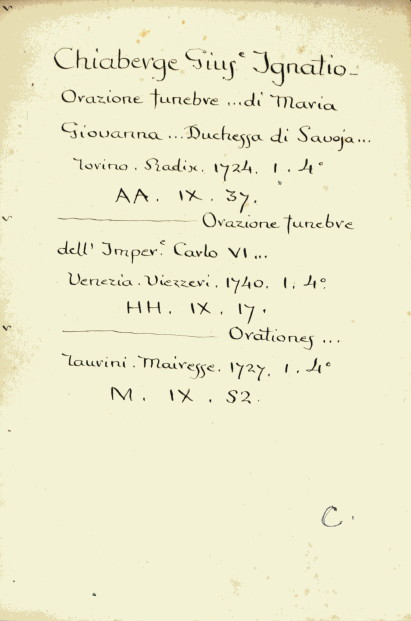 Chiaberge Giusᵉ Ignatio_
Orazione funebre ... di Maria
Giovanna ... Duchessa di Savoja ...
Torino. Radix. 1724. 1. 4°
AA. IX. 37.
———— Orazione funebre
dell' Imperᵉ. Carlo VI ...
Venezia. Viezzeri. 1740. 1. 4°.
HH. IX. 17.
———— Orationes ...
Taurini. Mairesse. 1727. 1. 4°
M. IX. 52.
C.